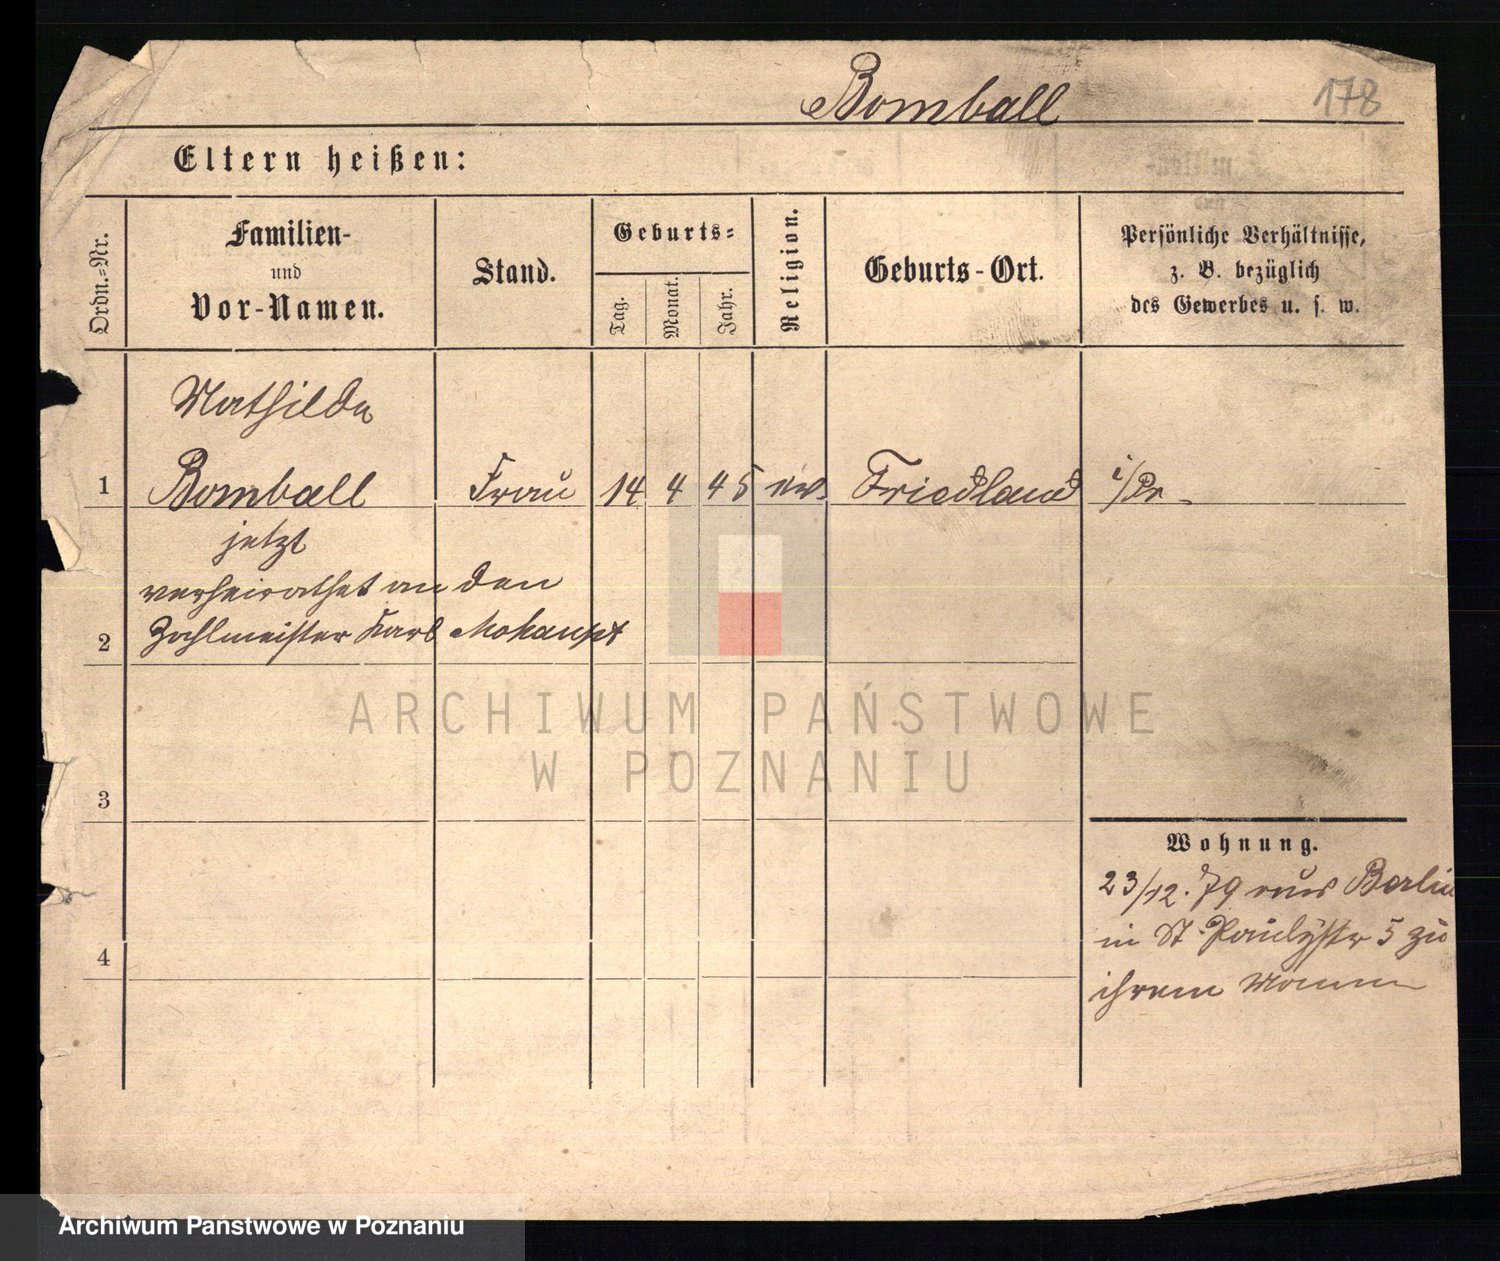 Bomball
178
Eltern heißen:
Ordn.-Nr.
Familien-
und
Vor-Namen.
Stand.
Geburts-
Tag.
Monat.
Jahr.
Religion.
Geburts-Ort.
Persönliche Verhältnisse,
z. B. bezüglich
des Gewerbes u. s. w.
Mathilde
1 Bomball Frau 14 4 45 ev. Friedland i/Pr.
jetzt
verheirathet an den
2 Zahlmeister Karl Mohaupt
3
4
Wohnung.
23/12.79 aus Berlin
in St. Paulystr 5 zu
ihrem Manne
ARCHIWUM PAŃSTWOWE
W POZNANIU
Archiwum Państwowe w Poznaniu